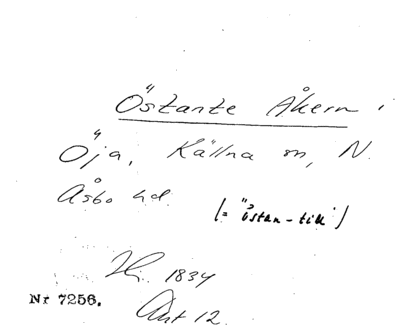 Östante Åkern i
Öja, Källna sn, N.
Åsbo hd.
(= "östan-till")
1834
Nr 7256. Akt 12.